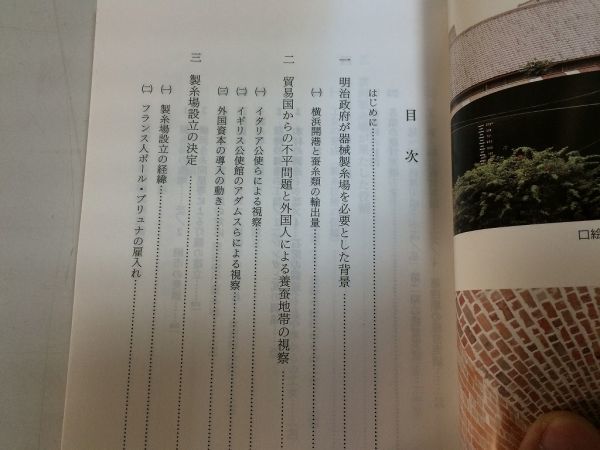 目次
はじめに
一 明治政府が器械製糸場を必要とした背景
㈠ 横浜開港と蚕糸類の輸出量
二 貿易国からの不平問題と外国人による養蚕地帯の視察
㈠ イタリア公使らによる視察
㈡ イギリス公使館のアダムスらによる視察
㈢ 外国資本の導入の動き
三 製糸場設立の決定
㈠ 製糸場設立の経緯
㈡ フランス人ポール・ブリュナの雇入れ
口絵